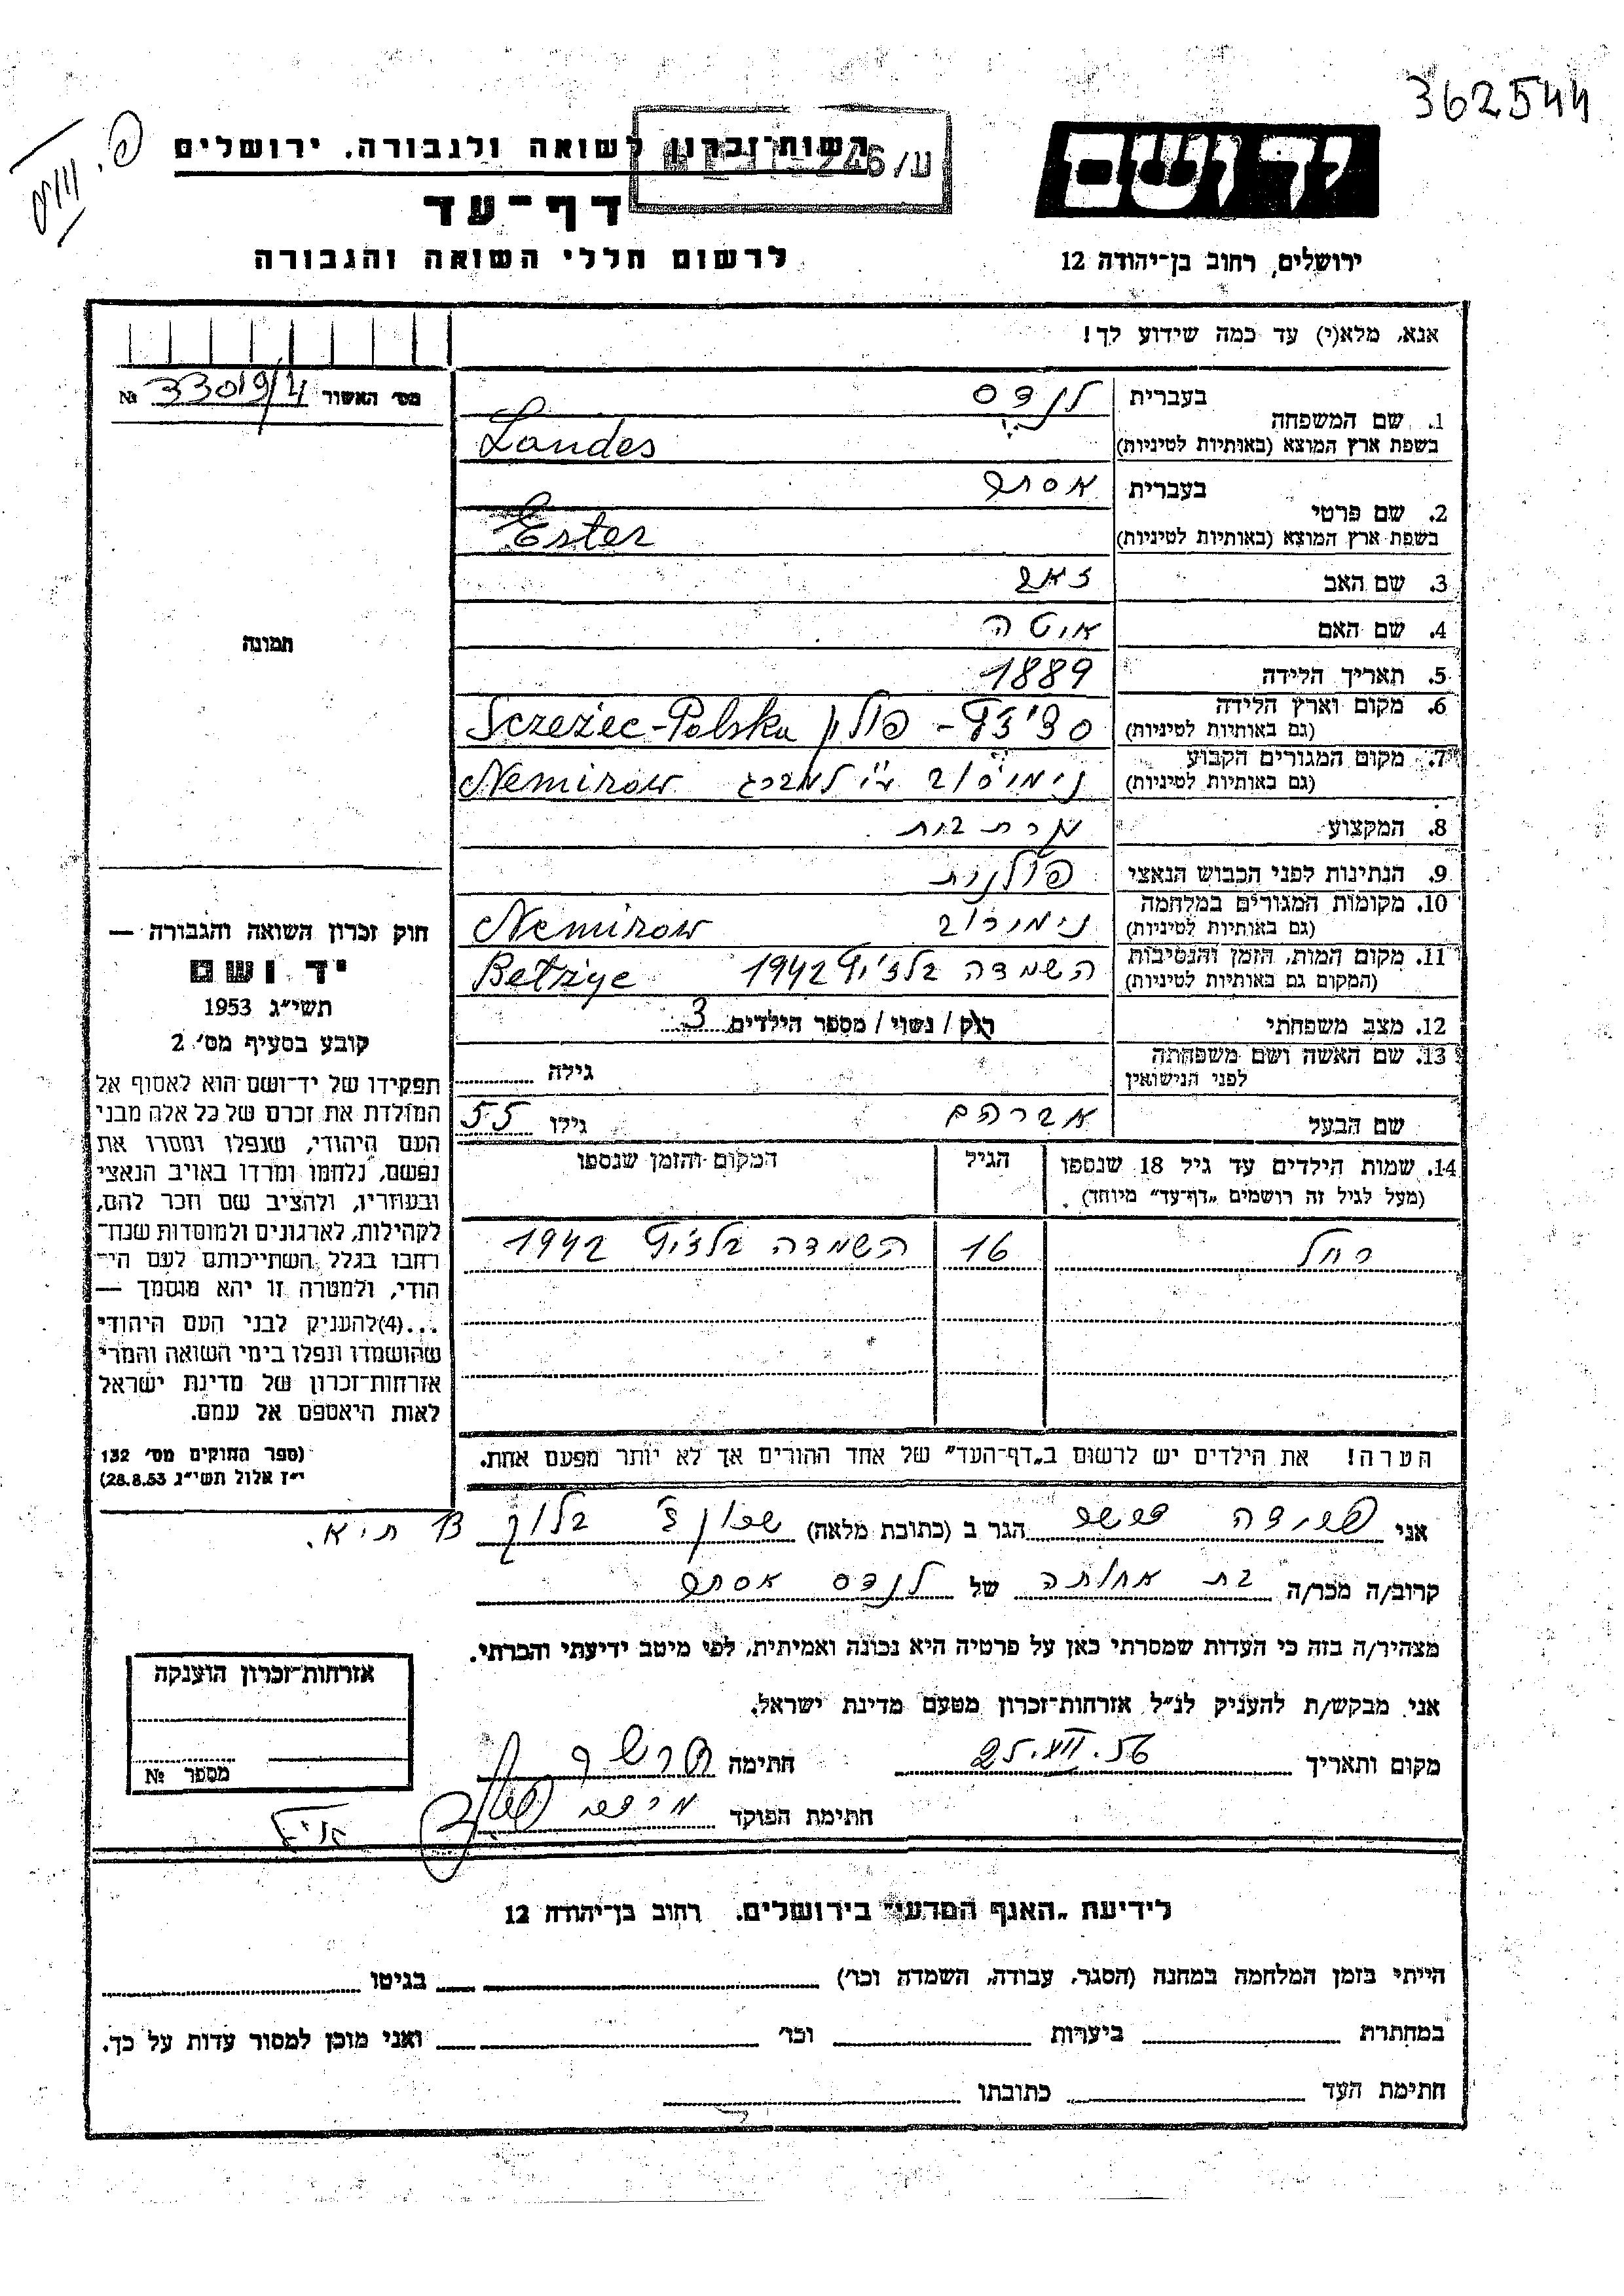 362544
יד ושם
רשות־זכרון לשואה ולגבורה. ירושלים
דף־עד
לרשום חללי השואה והגבורה
ירושלים, רחוב בן־יהודה 12
אנא, מלא(י) עד כמה שידוע לך!
מס׳ האשור 33019/4 №
1. שם המשפחה
בעברית לנדס
בשפת ארץ המוצא (באותיות לטיניות) Landes
2. שם פרטי
בעברית אסתר
בשפת ארץ המוצא (באותיות לטיניות) Ester
3. שם האב
4. שם האם
5. תאריך הלידה 1889
6. מקום וארץ הלידה
(גם באותיות לטיניות) פולין Sczeżec-Polska
7. מקום המגורים הקבוע
(גם באותיות לטיניות) Nemirow
8. המקצוע
9. הנתינות לפני הכבוש הנאצי פולנית
10. מקומות המגורים במלחמה
(גם באותיות לטיניות) נימירוב Nemirow
11. מקום המות, הזמן והנסיבות
(המקום גם באותיות לטיניות) השמדה בלז׳ץ 1942
12. מצב משפחתי רוק / נשוי / מספר הילדים 3
13. שם האשה ושם משפחתה
לפני הנישואין גילה
שם הבעל אברהם גילו 55
14. שמות הילדים עד גיל 18 שנספו הגיל המקום והזמן שנספו
(מעל לגיל זה רושמים „דף־עד״ מיוחד).
רחל 16 השמדה בלז׳ץ 1942
הערה! את הילדים יש לרשום ב„דף־העד״ של אחד ההורים אך לא יותר מפעם אחת.
תמונה
חוק זכרון השואה והגבורה —
יד ושם
תשי״ג 1953
קובע בסעיף מס׳ 2
תפקידו של יד־ושם הוא לאסוף אל
המולדת את זכרם של כל אלה מבני
העם היהודי, שנפלו ומסרו את
נפשם, נלחמו ומרדו באויב הנאצי
ובעוזריו, ולהציב שם וזכר להם,
לקהילות, לארגונים ולמוסדות שנח־
רחבו בגלל השתייכותם לעם הי־
הודי, ולמטרה זו יהא מוסמך —
...(4)להעניק לבני העם היהודי
שהושמדו ונפלו בימי השואה והמרי
אזרחות־זכרון של מדינת ישראל
לאות היאספם אל עמם.
(ספר החוקים מס׳ 132
י״ז אלול תשי״ג 28.8.53)
אני הגר ב (כתובת מלאה) בלוק 13 ת״א.
קרוב/ה מכר/ה בת אחותה של לנדס אסתר
מצהיר/ה בזה כי העדות שמסרתי כאן על פרטיה היא נכונה ואמיתית, לפי מיטב ידיעתי והכרתי.
אני מבקש/ת להעניק לנ״ל אזרחות־זכרון מטעם מדינת ישראל.
מקום ותאריך 25.VII.56 חתימה
חתימת הפוקד
אזרחות־זכרון הוענקה
מספר №
לידיעת „האגף המדעי״ בירושלים. רחוב בן־יהודה 12
הייתי בזמן המלחמה במחנה (הסגר, עבודה, השמדה וכו׳) בגיטו
במחתרת ביערות וכו׳ ואני מוכן למסור עדות על כך.
חתימת העד כתובתו